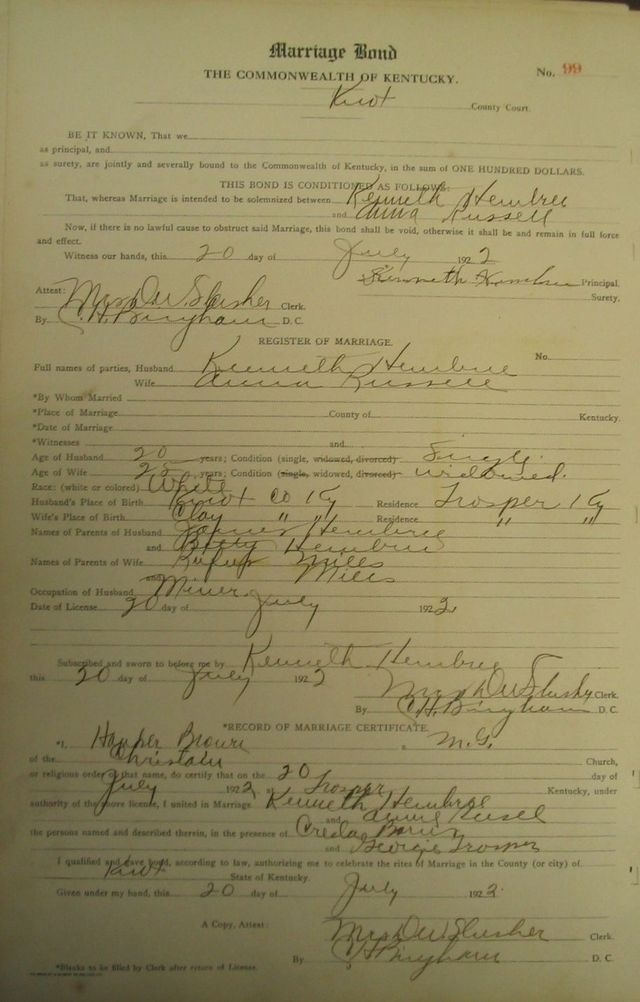 Marriage Bond
THE COMMONWEALTH OF KENTUCKY.
No. 99
Knox County Court.
BE IT KNOWN, That we
as principal, and
as surety, are jointly and severally bound to the Commonwealth of Kentucky, in the sum of ONE HUNDRED DOLLARS.
THIS BOND IS CONDITIONED AS FOLLOWS:
That, whereas Marriage is intended to be solemnized between Kenneth Hembree
and Anna Russell
Now, if there is no lawful cause to obstruct said Marriage, this bond shall be void, otherwise it shall be and remain in full force
and effect.
Witness our hands, this 20 day of July 1922
Kenneth Hembree Principal.
Surety.
Attest:
Mrs D W Slusher Clerk.
By C. H. Bingham D. C.
REGISTER OF MARRIAGE.
No.
Full names of parties, Husband Kenneth Hembree
Wife Anna Russell
*By Whom Married
*Place of Marriage County of Kentucky.
*Date of Marriage
*Witnesses and
Age of Husband 20 years; Condition (single, widowed, divorced) Single.
Age of Wife 25 years; Condition (single, widowed, divorced) widowed.
Race: (white or colored) White
Husband's Place of Birth Knox Co Ky Residence Trosper Ky
Wife's Place of Birth Clay " " Residence " "
Names of Parents of Husband James Hembree
and Betty Hembree
Names of Parents of Wife Rufus Mills
and Mills
Occupation of Husband Miner
Date of License 20 day of July 1922
Subscribed and sworn to before me by Kenneth Hembree
this 20 day of July 1922
Mrs D W Slusher Clerk.
By C. H. Bingham D. C.
*RECORD OF MARRIAGE CERTIFICATE.
*I, Harper Brown a M. G.
of the Christain Church,
or religious order of that name, do certify that on the 20 day of
July 1922 at Trosper Kentucky, under
authority of the above license, I united in Marriage Kenneth Hembree
and Anna Rusel
the persons named and described therein, in the presence of Creda
and Georgie Trosper
I qualified and gave bond, according to law, authorizing me to celebrate the rites of Marriage in the County (or city) of
Knox State of Kentucky.
Given under my hand, this 20 day of July 1922.
A Copy, Attest: Mrs D W Slusher Clerk.
By C H Bingham D. C.
*Blanks to be filled by Clerk after return of License.